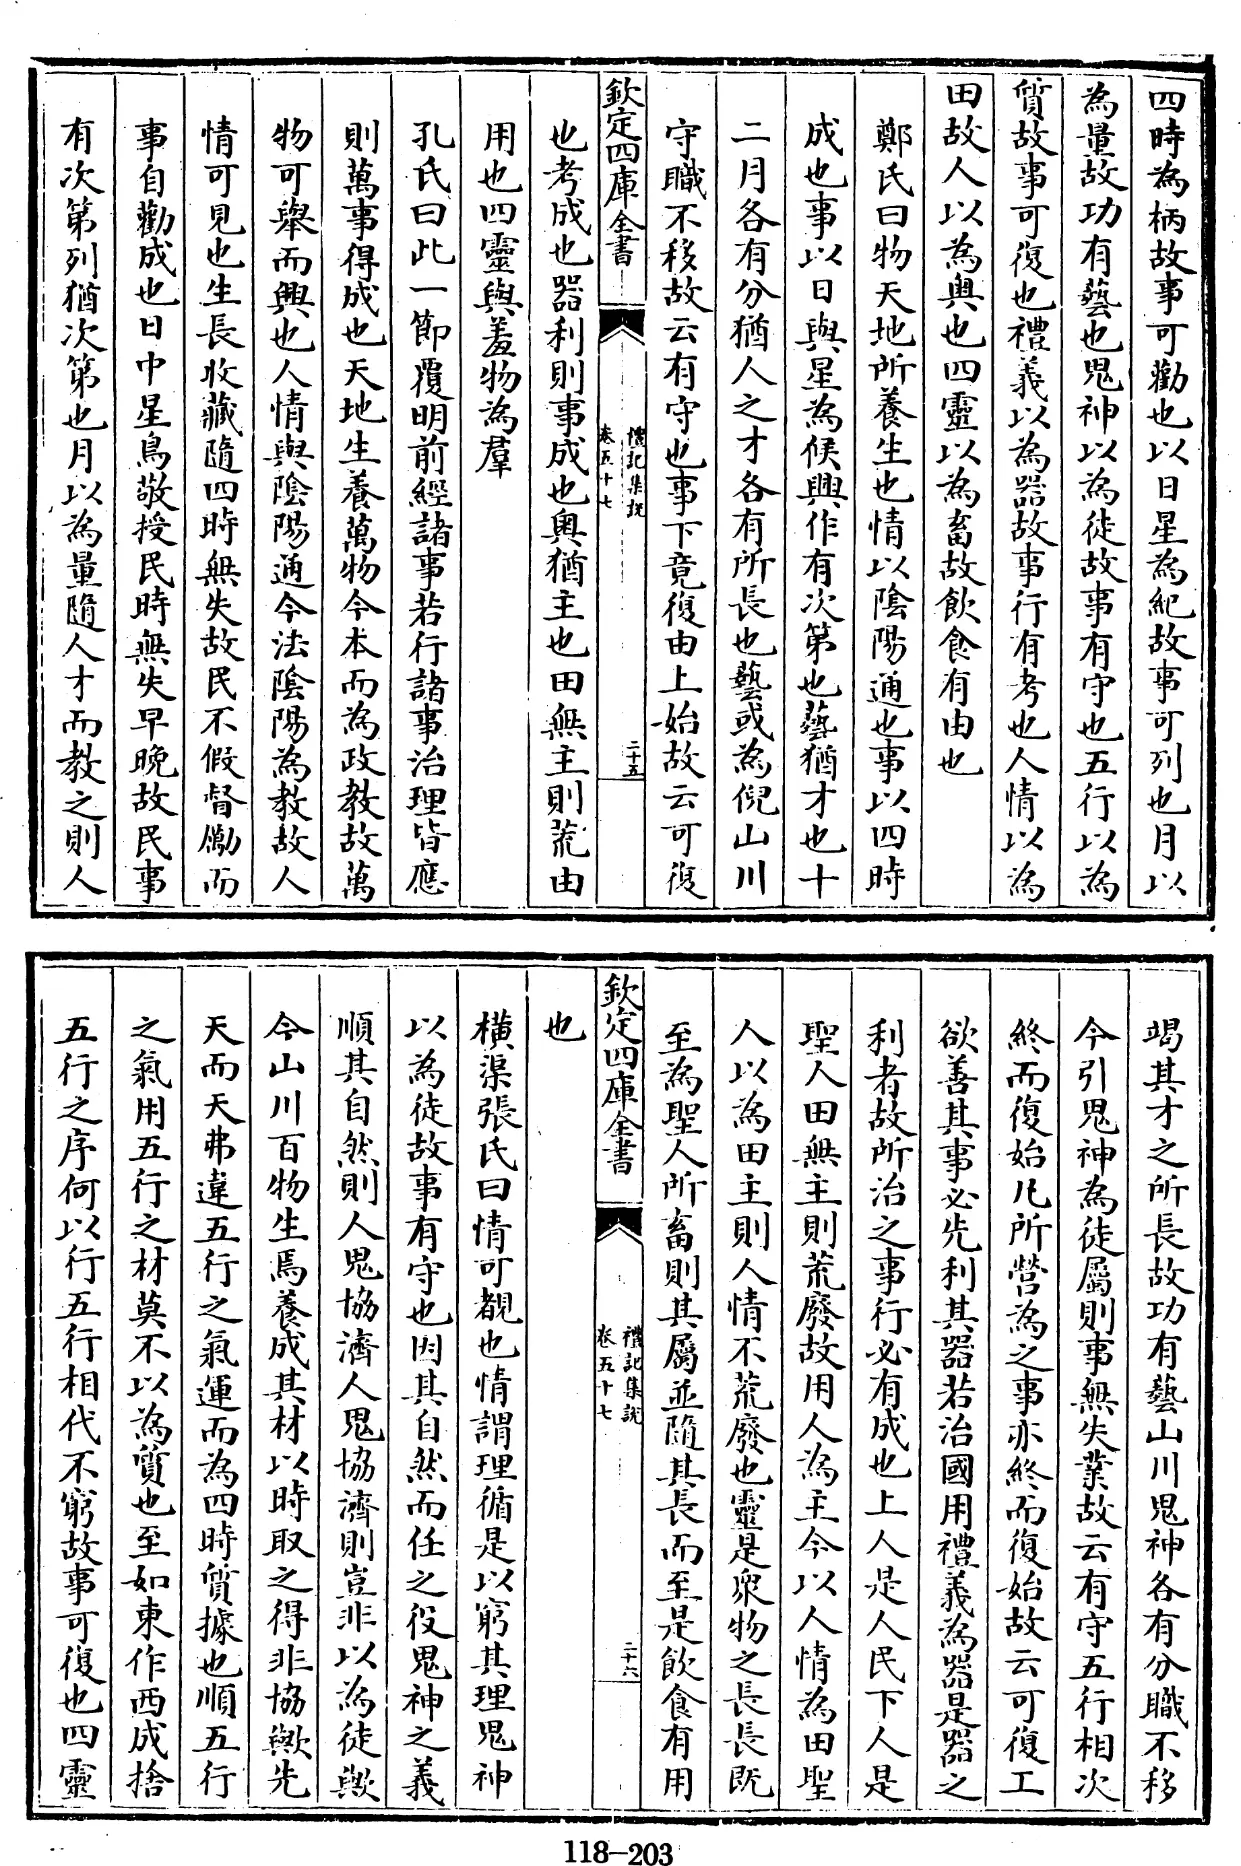 四時為柄故事可勸也以日星為紀故事可列也月以
為量故功有藝也鬼神以為徒故事有守也五行以為
質故事可復也禮義以為器故事行有考也人情以為
田故人以為奥也四靈以為畜故飲食有由也
鄭氏曰物天地所養生也情以陰陽通也事以四時
成也事以日與星為候興作有次第也藝猶才也十
二月各有分猶人之才各有所長也藝或為倪山川
守職不移故云有守也事下竟復由上始故云可復
欽定四庫全書
禮記集說
卷五十七
二十五
也考成也器利則事成也奥猶主也田無主則荒由
用也四靈與羞物為羣
孔氏曰此一節覆明前經諸事若行諸事治理皆應
則萬事得成也天地生養萬物今本而為政教故萬
物可舉而興也人情與陰陽通今法陰陽為教故人
情可見也生長收藏隨四時無失故民不假督勵而
事自勸成也日中星鳥敬授民時無失早晚故民事
有次第列猶次第也月以為量隨人才而教之則人
竭其才之所長故功有藝山川鬼神各有分職不移
今引鬼神為徒屬則事無失業故云有守五行相次
終而復始凡所營為之事亦終而復始故云可復工
欲善其事必先利其器若治國用禮義為器是器之
利者故所治之事行必有成也上人是人民下人是
聖人田無主則荒廢故用人為主今以人情為田聖
人以為田主則人情不荒廢也靈是衆物之長長既
至為聖人所畜則其屬並隨其長而至是飲食有用
欽定四庫全書
禮記集說
卷五十七
二十六
也
橫渠張氏曰情可覩也情謂理循是以窮其理鬼神
以為徒故事有守也因其自然而任之役鬼神之義
順其自然則人鬼協濟人鬼協濟則豈非以為徒歟
今山川百物生焉養成其材以時取之得非協歟先
天而天弗違五行之氣運而為四時質據也順五行
之氣用五行之材莫不以為質也至如東作西成捨
五行之序何以行五行相代不窮故事可復也四靈
118-203